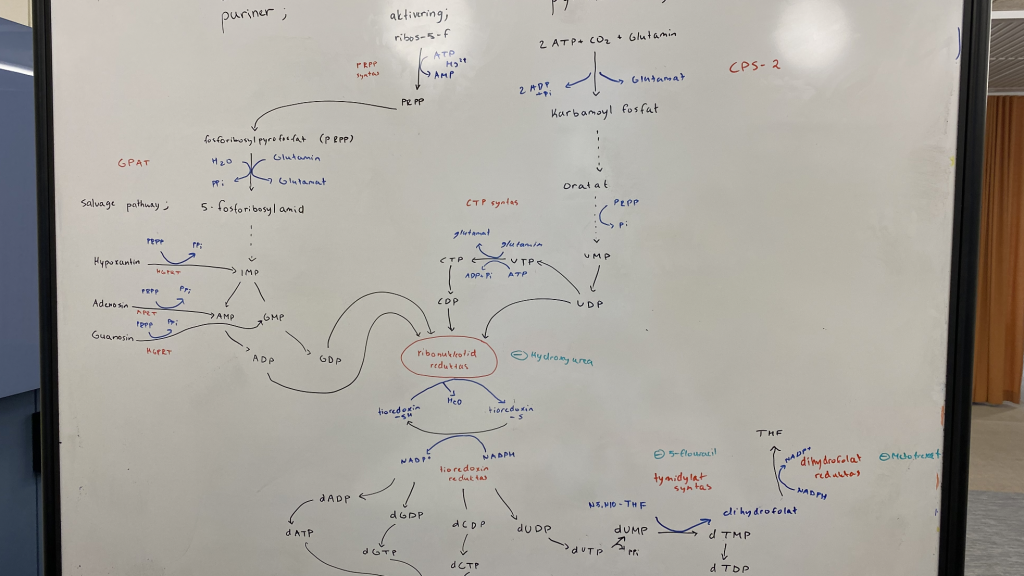 puriner ;
aktivering;
ribos-5-f
PRPP
syntas
ATP
Mg²⁺
AMP
PRPP
2 ATP + CO₂ + Glutamin
2 ADP
+Pi
Glutamat
CPS-2
Karbamoyl fosfat
fosforibosylpyrofosfat (PRPP)
GPAT
H₂O
Glutamin
PPi
Glutamat
Salvage pathway;
5-fosforibosylamid
Oratat
PRPP
Pi
UMP
CTP syntas
glutamat
glutamin
CTP
UTP
ADP+Pi
ATP
CDP
UDP
PRPP
PPi
Hypoxantin
HGPRT
IMP
PRPP
PPi
Adenosin
APRT
AMP
GMP
PRPP
PPi
Guanosin
HGPRT
ADP
GDP
ribonukleotid
reduktas
⊖ Hydroxyurea
tioredoxin
-SH
H₂O
tioredoxin
-S
NADP⁺
NADPH
tioredoxin
reduktas
dADP
dGDP
dCDP
dUDP
dATP
dGTP
dCTP
dUTP
PPi
dUMP
N5,N10-THF
⊖ 5-flouracil
tymidylat
syntas
dihydrofolat
dTMP
dTDP
THF
NADP⁺
NADPH
dihydrofolat
reduktas
⊖ Metotrexat